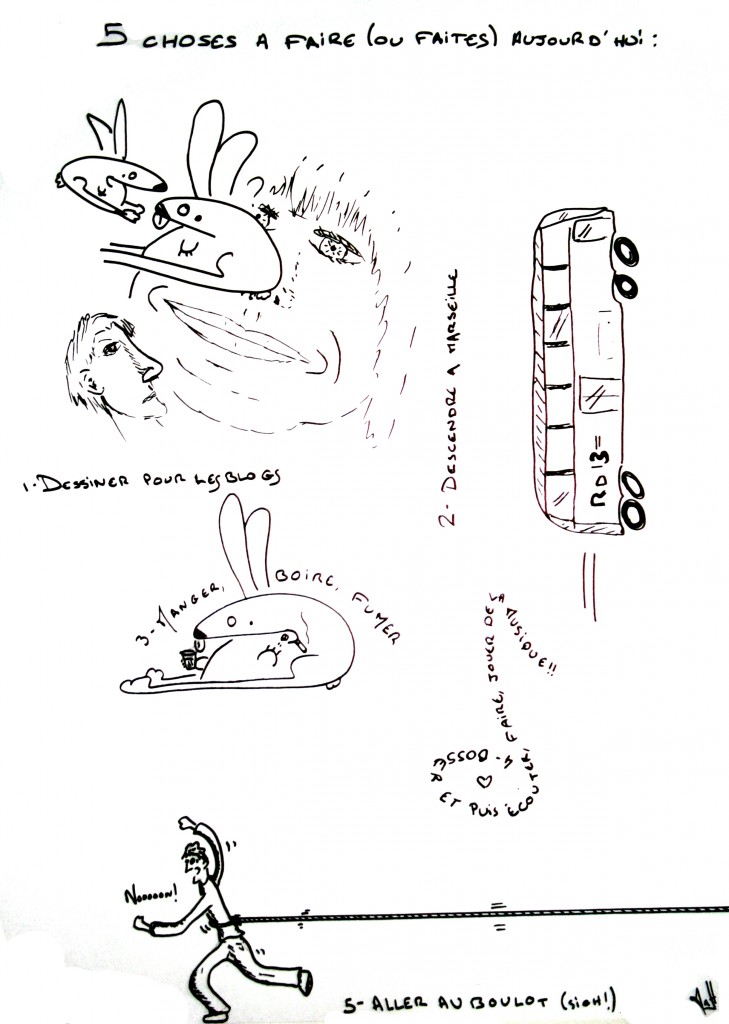 5 CHOSES A FAIRE (OU FAITES) AUJOURD'HUI :
1-DESSINER POUR LES BLOGS
2- DESCENDRE A MARSEILLE
RD13=
3-MANGER, BOIRE, FUMER
4- BOSSER ET PUIS ECOUTER, FAIRE, JOUER DE LA MUSIQUE!!
Nooooon!
5-ALLER AU BOULOT (SIGH!)